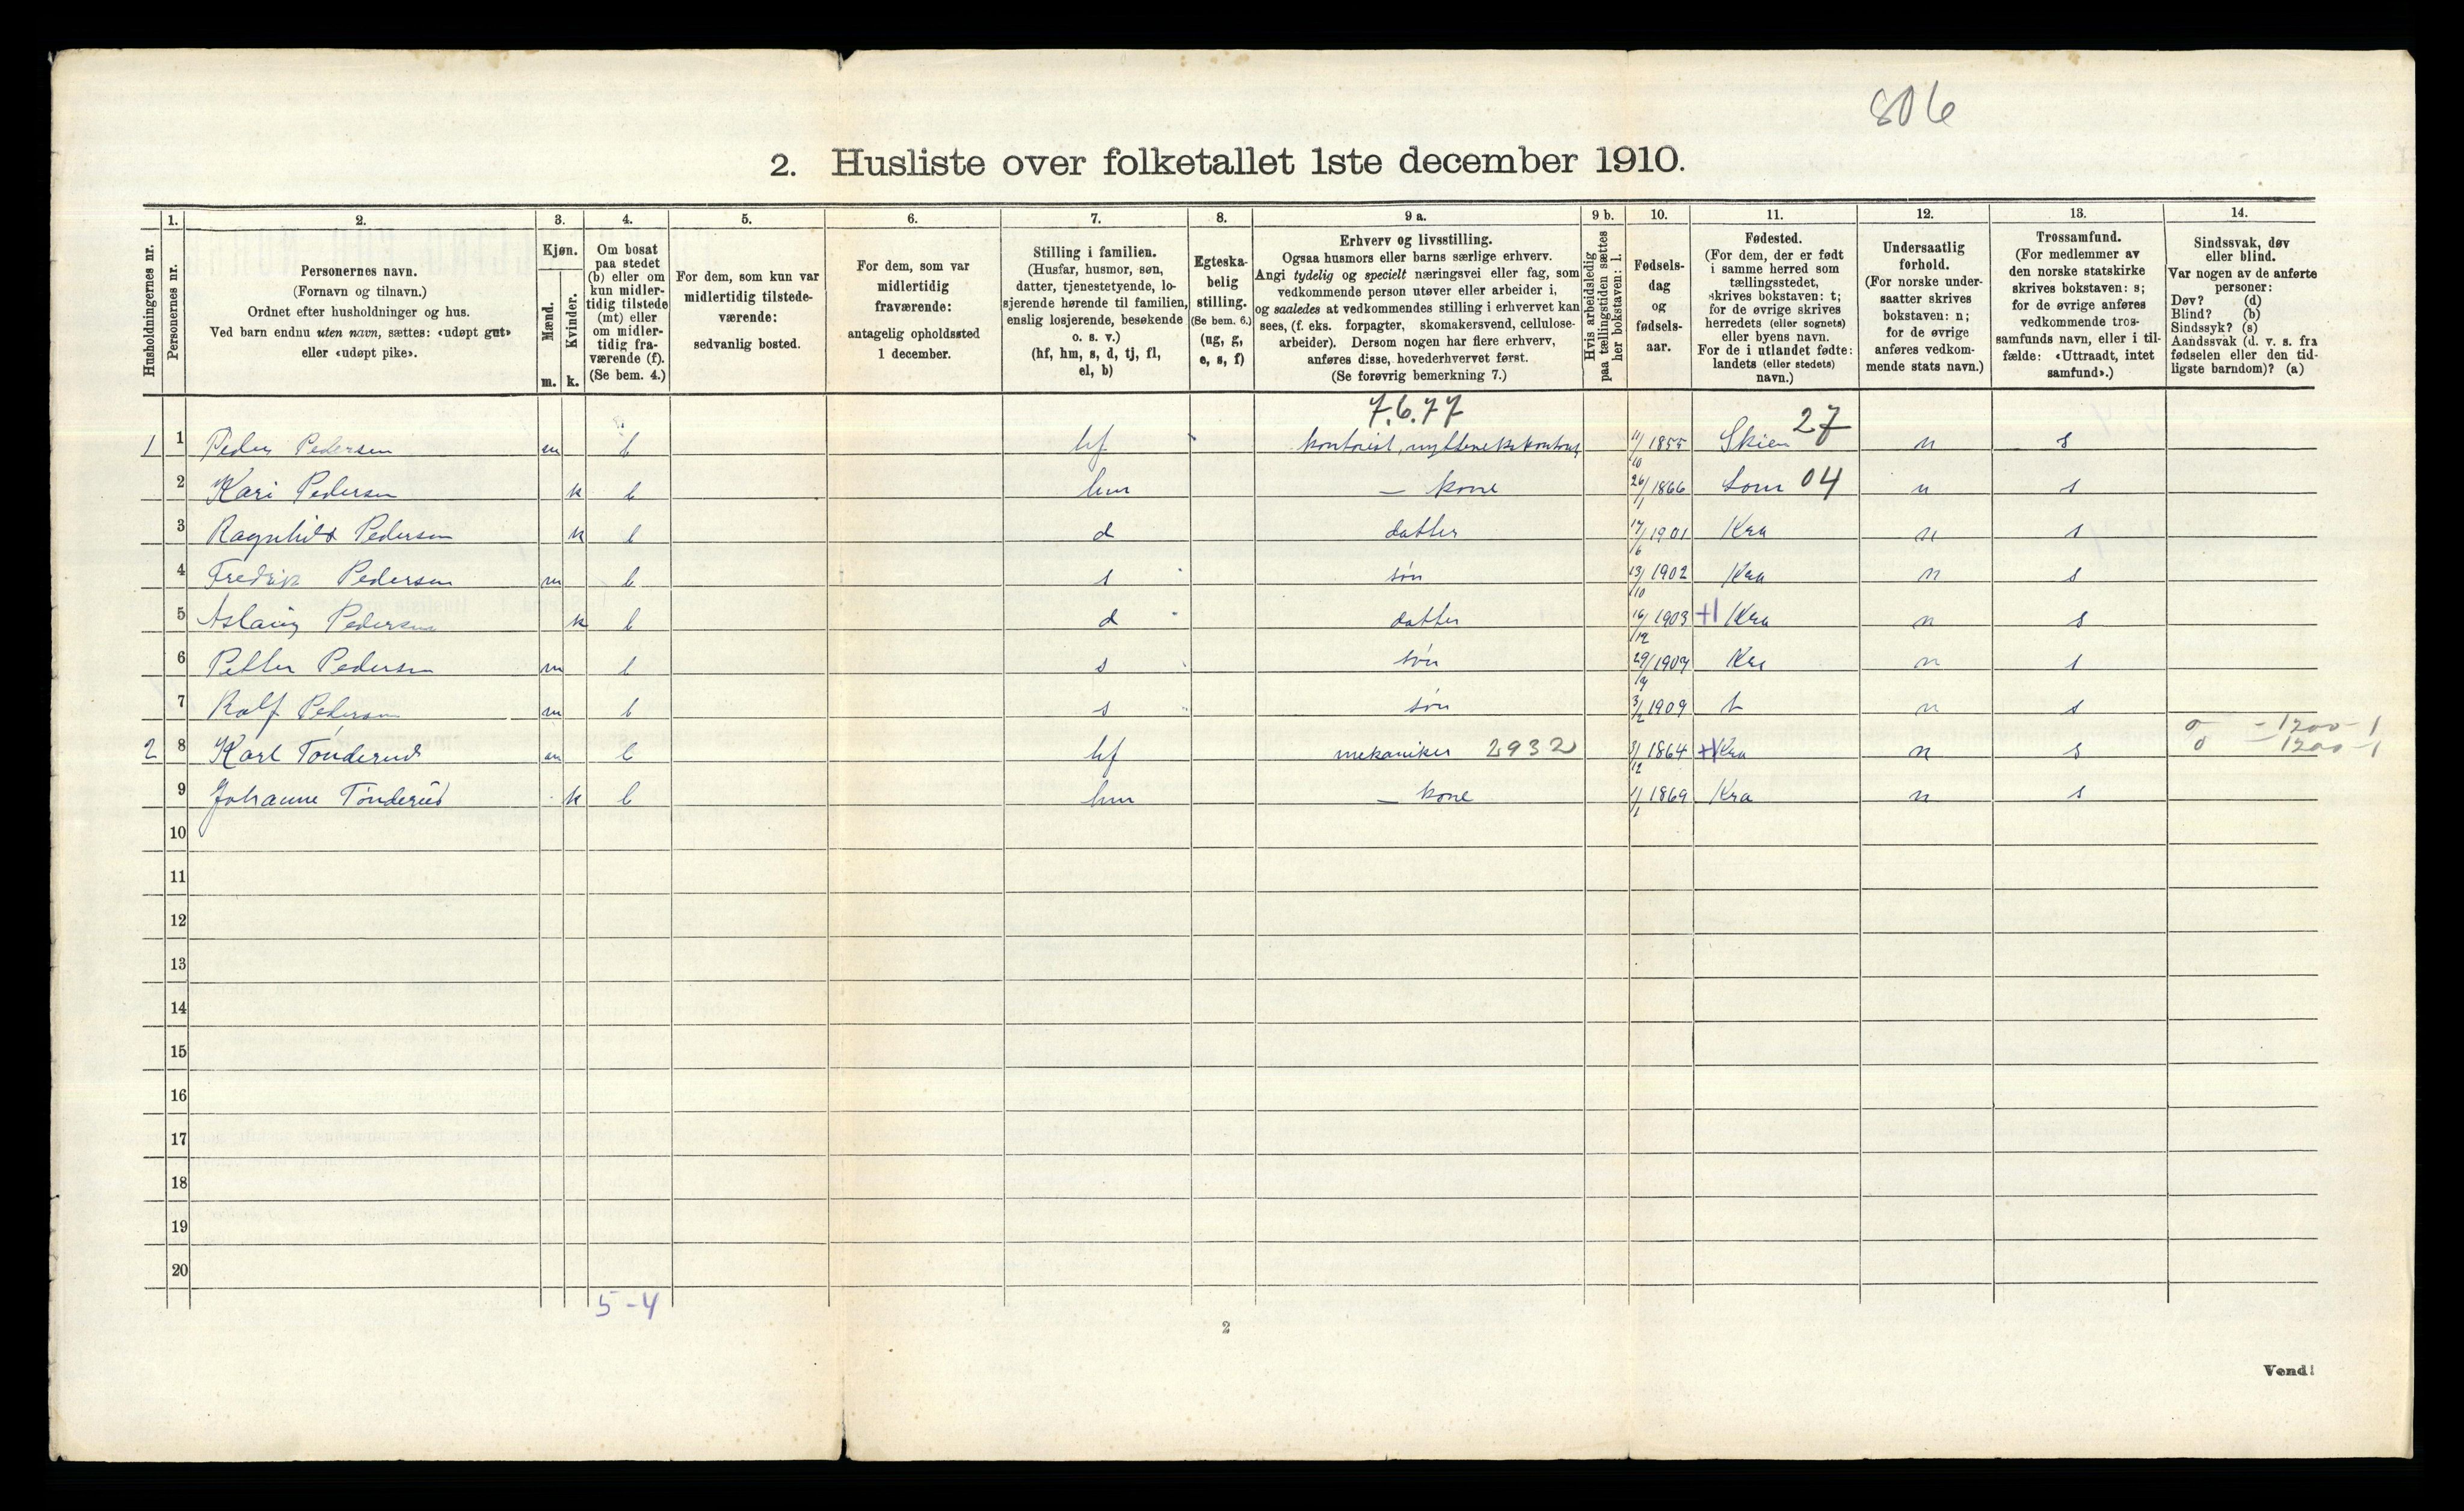 806
2. Husliste over folketallet 1ste december 1910.
1. 2. 3. 4. 5. 6. 7. 8. 9 a. 9 b. 10. 11. 12. 13. 14.
Husholdningernes nr.
Personernes nr.
Personernes navn.
(Fornavn og tilnavn.)
Ordnet efter husholdninger og hus.
Ved barn endnu uten navn, sættes: «udøpt gut»
eller «udøpt pike».
Kjøn.
Mænd.
Kvinder.
m. k.
Om bosat
paa stedet
(b) eller om
kun midler-
tidig tilstede
(mt) eller
om midler-
tidig fra-
værende (f).
(Se bem. 4.)
For dem, som kun var
midlertidig tilstede-
værende:
sedvanlig bosted.
For dem, som var
midlertidig
fraværende:
antagelig opholdssted
1 december.
Stilling i familien.
(Husfar, husmor, søn,
datter, tjenestetyende, lo-
sjerende hørende til familien,
enslig losjerende, besøkende
o. s. v.)
(hf, hm, s, d, tj, fl,
el, b)
Egteska-
belig
stilling.
(Se bem. 6.)
(ug, g,
e, s, f)
Erhverv og livsstilling.
Ogsaa husmors eller barns særlige erhverv.
Angi tydelig og specielt næringsvei eller fag, som
vedkommende person utøver eller arbeider i,
og saaledes at vedkommendes stilling i erhvervet kan
sees, (f. eks. forpagter, skomakersvend, cellulose-
arbeider). Dersom nogen har flere erhverv,
anføres disse, hovederhvervet først.
(Se forøvrig bemerkning 7.)
Hvis arbeidsledig
paa tællingstiden sættes
her bokstaven: l.
Fødsels-
dag
og
fødsels-
aar.
Fødested.
(For dem, der er født
i samme herred som
tællingsstedet,
skrives bokstaven: t;
for de øvrige skrives
herredets (eller sognets)
eller byens navn.
For de i utlandet fødte:
landets (eller stedets)
navn.)
Undersaatlig
forhold.
(For norske under-
saatter skrives
bokstaven: n;
for de øvrige
anføres vedkom-
mende stats navn.)
Trossamfund.
(For medlemmer av
den norske statskirke
skrives bokstaven: s;
for de øvrige anføres
vedkommende tros-
samfunds navn, eller i til-
fælde: «Uttraadt, intet
samfund».)
Sindssvak, døv
eller blind.
Var nogen av de anførte
personer:
Døv? (d)
Blind? (b)
Sindssyk? (s)
Aandssvak (d. v. s. fra
fødselen eller den tid-
ligste barndom)? (a)
7.6.77
1 1 Peder Pedersen m b hf kontorist, 11/10 1855 Skien 27 n s
2 Kari Pedersen k b hm — kone 26/1 1866 Lom 04 n s
3 Ragnhild Pedersen k b d datter 17/6 1901 Kra n s
4 Fredrik Pedersen m b s søn 13/10 1902 Kra n s
5 Aslaug Pedersen k b d datter 16/12 1903 +1 Kra n s
6 Petter Pedersen m b s søn Kra n s
7 Rolf Pedersen m b s søn 3/2 1909 t n s
2 8 Karl Tønderud m b hf mekaniker 2932 1864 +1 Kra n s
1200-1
1200-1
9 Johanne Tønderud k b hm — kone 1869 Kra n s
10
11
12
13
14
15
16
17
18
19
20
5-4
2
Vend!